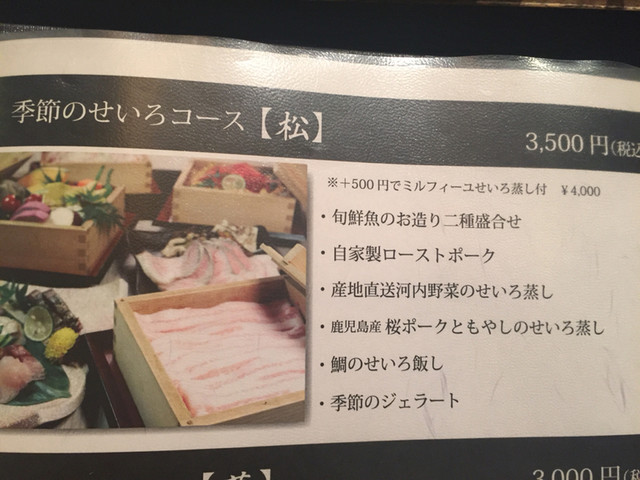 季節のせいろコース【松】
3,500円(税込
※+500円でミルフィーユせいろ蒸し付 ¥4,000
・旬鮮魚のお造り二種盛合せ
・自家製ローストポーク
・産地直送河内野菜のせいろ蒸し
・鹿児島産 桜ポークともやしのせいろ蒸し
・鯛のせいろ飯し
・季節のジェラート
3,000円(税